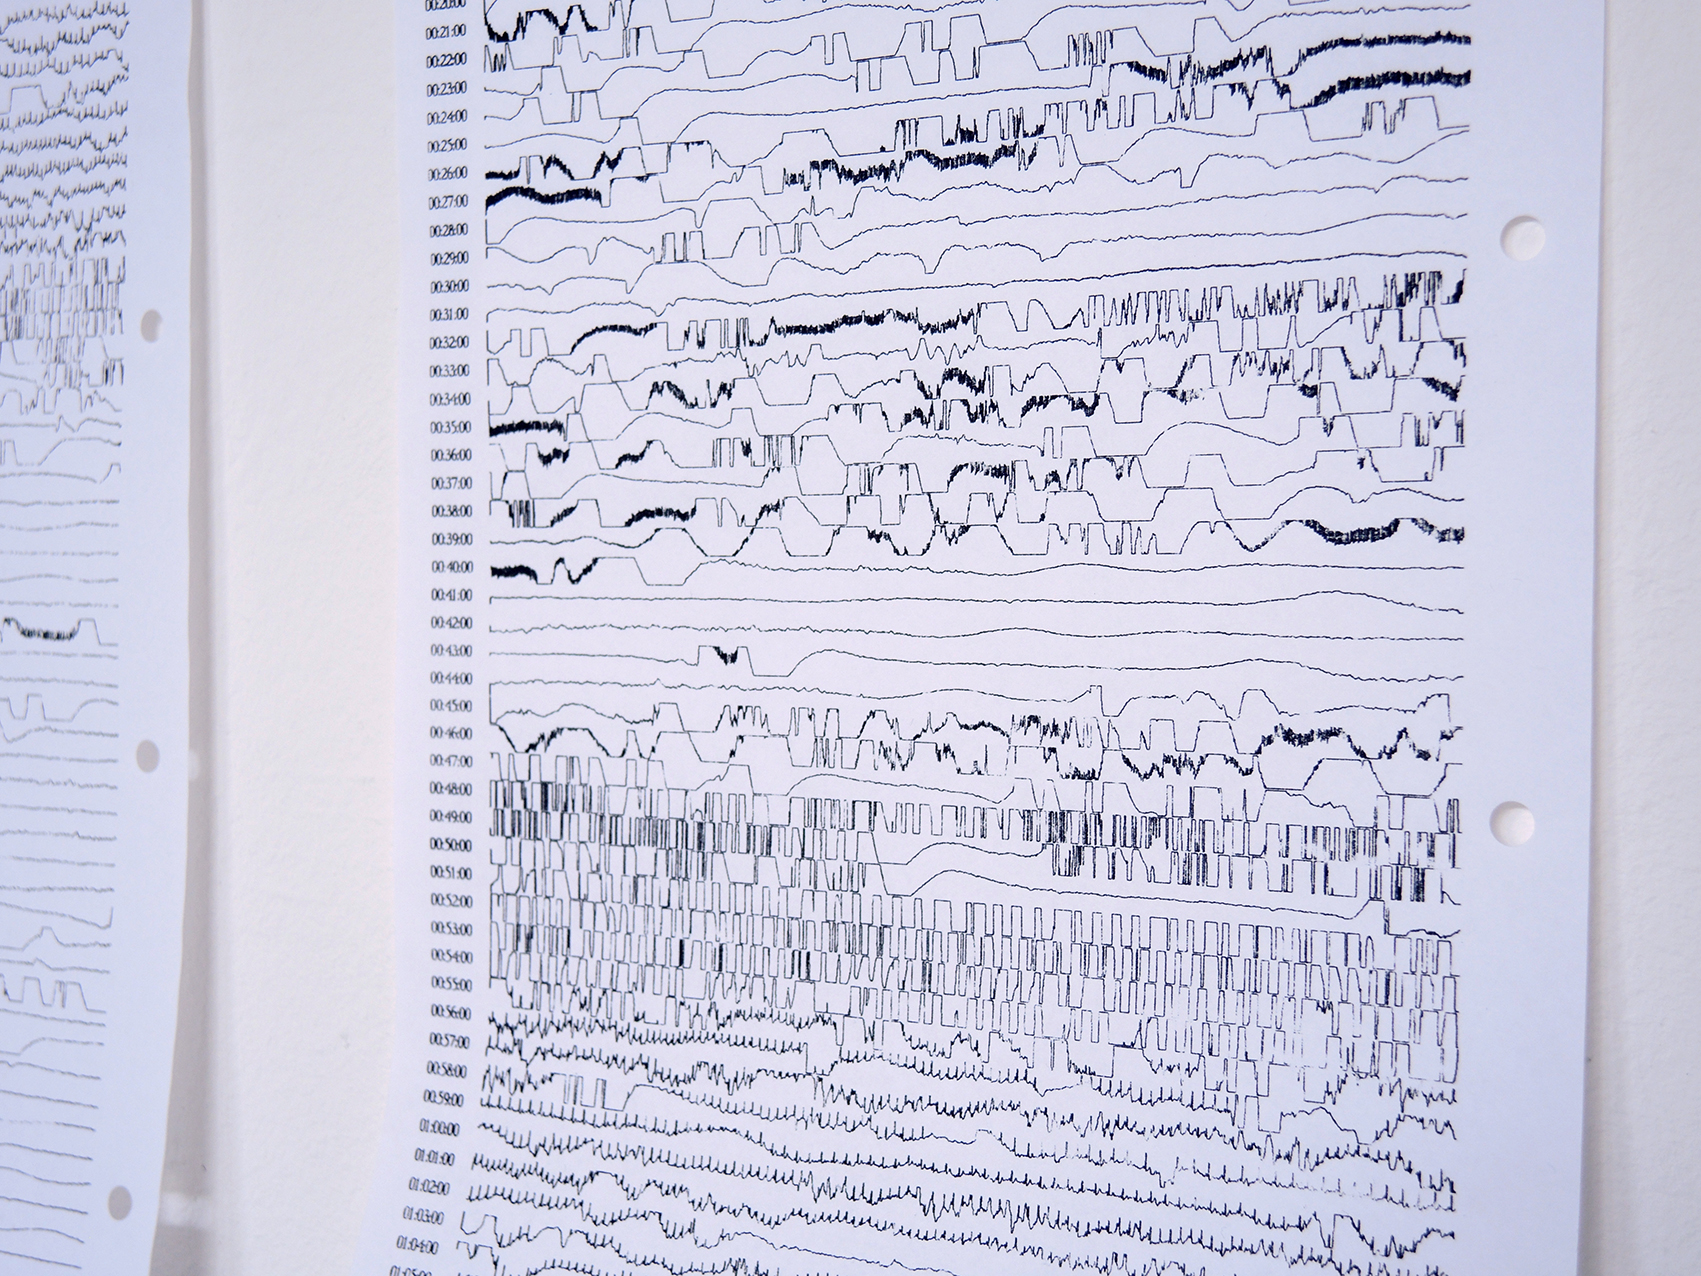 00:20:00
00:21:00
00:22:00
00:23:00
00:24:00
00:25:00
00:26:00
00:27:00
00:28:00
00:29:00
00:30:00
00:31:00
00:32:00
00:33:00
00:34:00
00:35:00
00:36:00
00:37:00
00:38:00
00:39:00
00:40:00
00:41:00
00:42:00
00:43:00
00:44:00
00:45:00
00:46:00
00:47:00
00:48:00
00:49:00
00:50:00
00:51:00
00:52:00
00:53:00
00:54:00
00:55:00
00:56:00
00:57:00
00:58:00
00:59:00
01:00:00
01:01:00
01:02:00
01:03:00
01:04:00
01:05:00